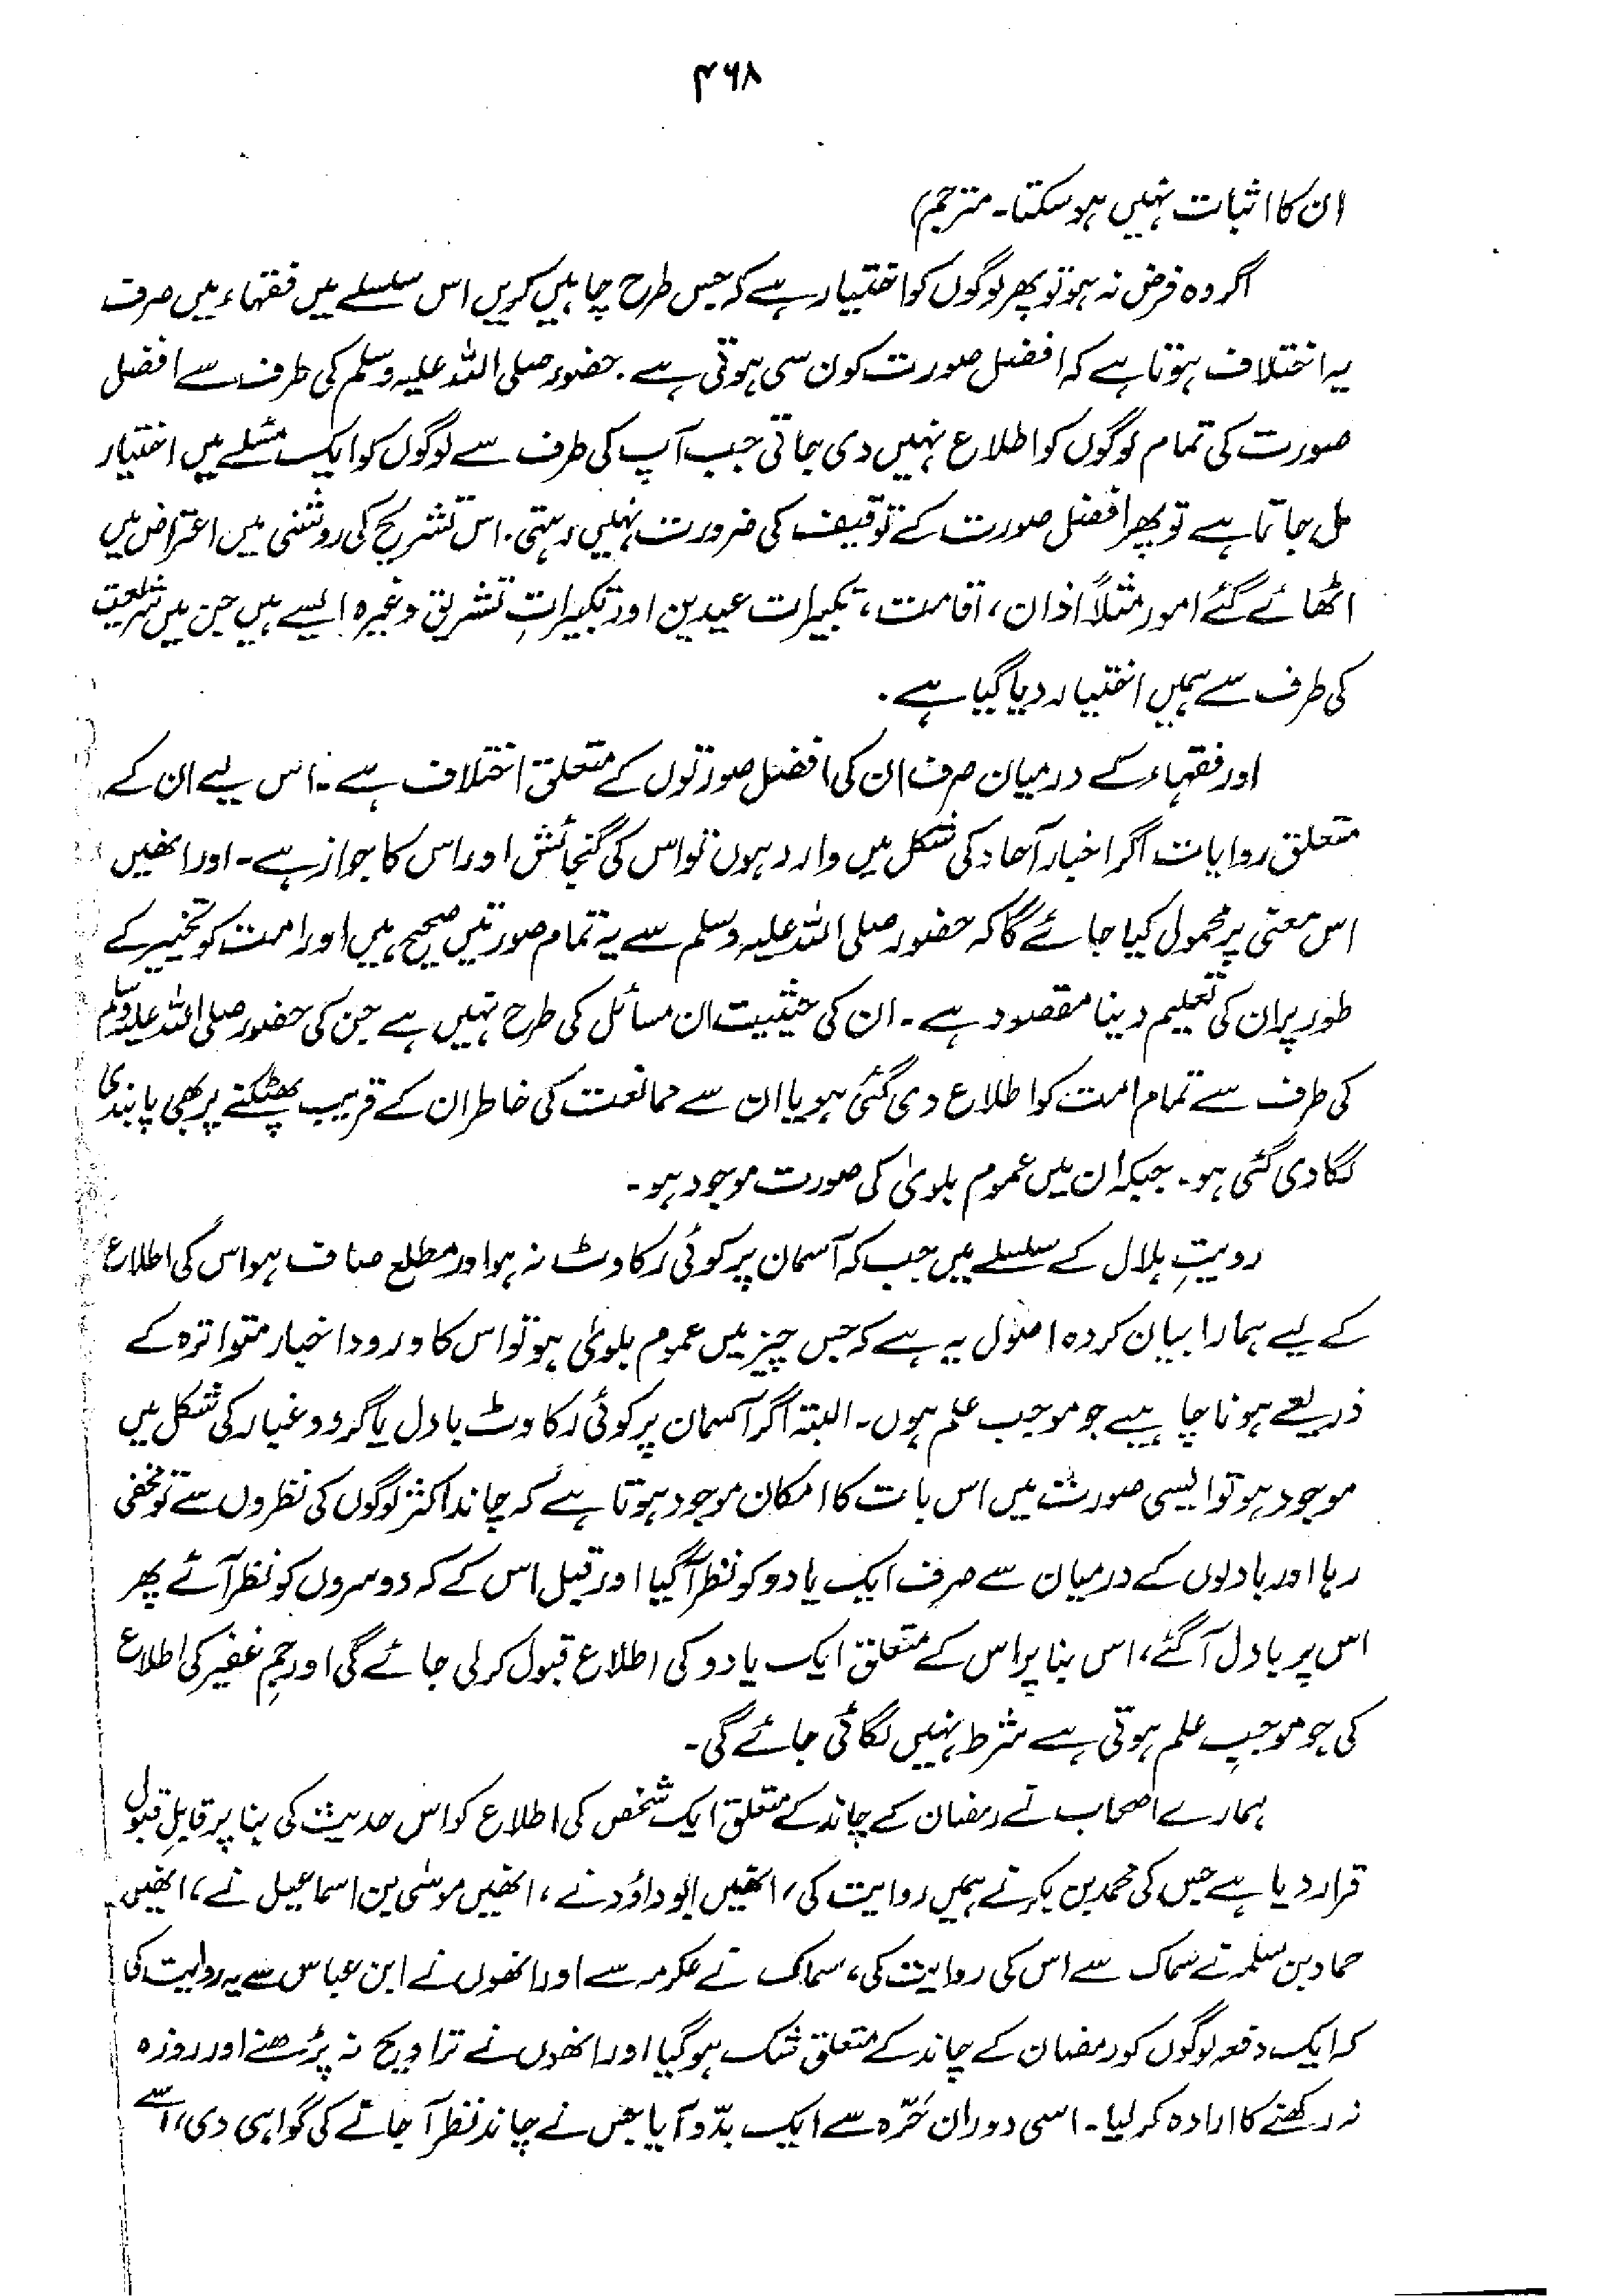 ۴۶۸
ان کا اثبات نہیں ہو سکتا۔ مترجم)
اگر وہ فرض نہ ہو تو پھر لوگوں کو اختیار ہے کہ جس طرح چاہیں کریں اس سلسلے میں فقہاء میں صرف
یہ اختلاف ہوتا ہے کہ افضل صورت کون سی ہوتی ہے۔ حضور صلی اللہ علیہ وسلم کی طرف سے افضل
صورت کی تمام لوگوں کو اطلاع نہیں دی جاتی جب آپ کی طرف سے لوگوں کو ایک مسئلے میں اختیار
مل جاتا ہے تو پھر افضل صورت کے توقیف کی ضرورت نہیں رہتی۔ اس تشریح کی روشنی میں اعتراض میں
اٹھائے گئے امور مثلاً اذان، اقامت، تکبیرات عیدین اور تکبیراتِ تشریق وغیرہ ایسے ہیں جن میں شریعت
کی طرف سے ہمیں اختیار دیا گیا ہے۔
اور فقہاء کے درمیان صرف ان کی افضل صورتوں کے متعلق اختلاف ہے۔ اس لیے ان کے
متعلق روایات اگر اخبار آحاد کی شکل میں وارد ہوں تو اس کی گنجائش اور اس کا جواز ہے۔ اور انھیں
اس معنی پر محمول کیا جائے گا کہ حضور صلی اللہ علیہ وسلم سے یہ تمام صورتیں صحیح ہیں اور امت کو تخییر کے
طور پر ان کی تعلیم دینا مقصود ہے۔ ان کی حیثیت ان مسائل کی طرح نہیں ہے جن کی حضور صلی اللہ علیہ وسلم
کی طرف سے تمام امت کو اطلاع دی گئی ہو یا ان سے ممانعت کی خاطر ان کے قریب پھٹکنے پر بھی پابندی
لگا دی گئی ہو۔ جبکہ ان میں عموم بلویٰ کی صورت موجود ہو۔
رویتِ ہلال کے سلسلے میں جب کہ آسمان پر کوئی رکاوٹ نہ ہو اور مطلع صاف ہو اس کی اطلاع
کے لیے ہمارا بیان کردہ اصول یہ ہے کہ جس چیز میں عموم بلویٰ ہو تو اس کا ورود اخبار متواترہ کے
ذریعے ہونا چاہیے جو موجب علم ہوں۔ البتہ اگر آسمان پر کوئی رکاوٹ بادل یا گرد و غبار کی شکل میں
موجود ہو تو ایسی صورت میں اس بات کا امکان موجود ہوتا ہے کہ چاند اکثر لوگوں کی نظروں سے تو مخفی
رہا اور بادلوں کے درمیان سے صرف ایک یا دو کو نظر آ گیا اور قبل اس کے کہ دوسروں کو نظر آئے پھر
اس پر بادل آ گئے، اس بنا پر اس کے متعلق ایک یا دو کی اطلاع قبول کر لی جائے گی اور جمِ غفیر کی اطلاع
کی جو موجبِ علم ہوتی ہے شرط نہیں لگائی جائے گی۔
ہمارے اصحاب نے رمضان کے چاند کے متعلق ایک شخص کی اطلاع کو اس حدیث کی بنا پر قابلِ قبول
قرار دیا ہے جس کی محمد بن بکر نے ہمیں روایت کی، انھیں ابو داؤد نے، انھیں موسٰی بن اسماعیل نے، انھیں
حماد بن سلمہ نے سماک سے اس کی روایت کی، سماک نے عکرمہ سے اور انھوں نے ابن عباس سے یہ روایت کی
کہ ایک دفعہ لوگوں کو رمضان کے چاند کے متعلق شک ہو گیا اور انھوں نے تراویح نہ پڑھنے اور روزہ
نہ رکھنے کا ارادہ کر لیا۔ اسی دوران حَرّہ سے ایک بدّو آیا جس نے چاند نظر آ جانے کی گواہی دی، اسے